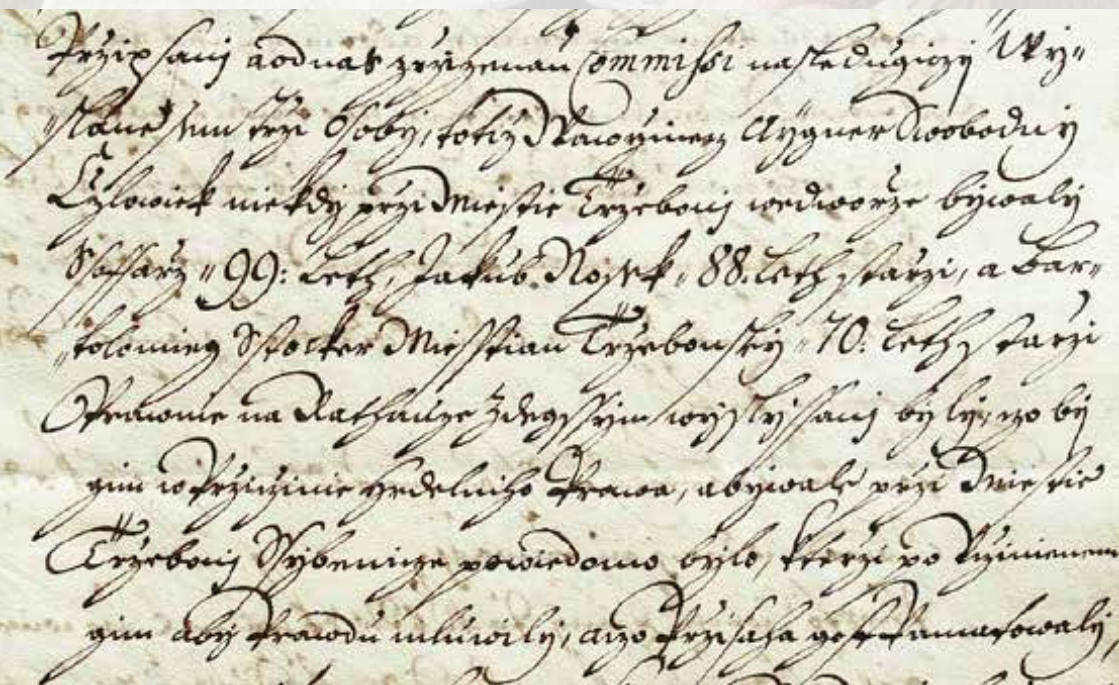 Przipsanj a odnas zrzizenau Commissi nasledugiczy Wy-
slane sau trzi Osoby, totiz Wawrzinecz Aygner Swobodny
Czlowiek niekdy przi Miestie Trzebonj wedworze bywaly
Ssaffarz 99: Leth, Jakub 88. Leth starzi, a Bar-
tolomieg Stocker Miesstian Trzebonsky 70: Leth starzi
Prawnie na Rathauze Zdegssym wyslyssanj byly, czo by
gim w Przicžinie Hrdelniho Prawa, a bywale przi Miestie
Trzebonj Ssybenicze powiedomo bylo, kterzi po
gim aby Prawdu mluwily, a czo Przisaha gest Pamatowaly,